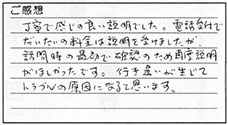 ご感想
丁寧で感じの良い説明でした。電話受付で
だいたいの料金は説明を受けましたが、
訪問時の最初で確認のため再度説明
がほしかったです。行き違いが生じて
トラブルの原因になると思います。